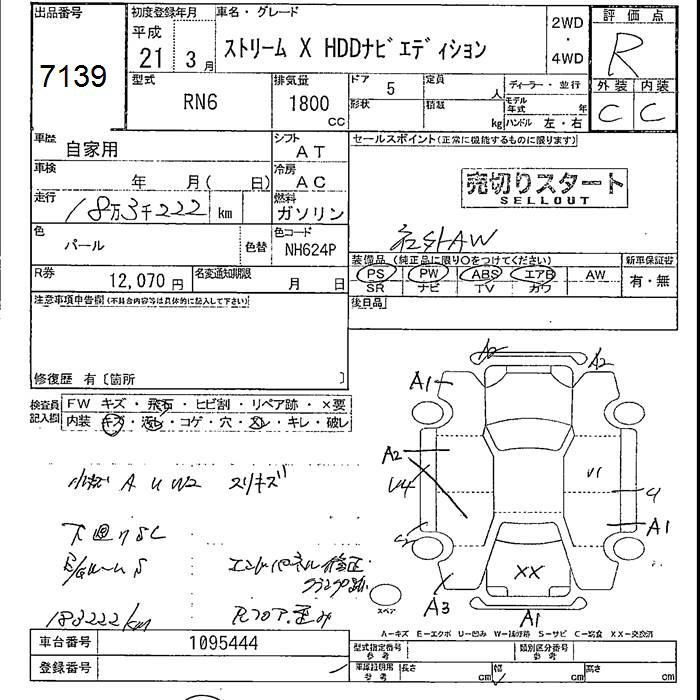 出品番号 初度登録年月 車名・グレード 評価点
平成 2WD
7139 21 3月 ストリーム X HDDナビエディション ・ R
4WD
型式 排気量 ドア 5 定員 人 ディーラー・並行 外装 内装
RN6 1800 cc 形状 積載 kg モデル年式 年 C C
ハンドル 左・右
車歴 自家用 シフト AT セールスポイント(正常に機能するものに限ります)
車検 年 月( 日) 冷房 AC
売切りスタート
SELLOUT
走行 18万3千222 km 燃料 ガソリン
社外AW
色 パール 色替 色コード NH624P
装備品(純正品に限り○をつけてください) 新車保証書
PS PW ABS エアB AW 有・無
SR ナビ TV カワ
R券 12,070円 名変通知期限 月 日
後日品
注意事項申告欄(不具合内容等は具体的に記入して下さい)
修復歴 有〔箇所 〕
検査員記入欄 FW キズ・飛石・ヒビ割・リペア跡・×要
内装 キズ・汚れ・コゲ・穴・スレ・キレ・破レ
A2 A2
A1
A2
U4 U1
A1
XX
A3 A1
小キズ A U W2 スリキズ
下廻りSC
エンドパネル修正
クランプ跡
183222km Rフロア歪み
スペア
A-キズ E-エクボ U-凹み W-補修跡 S-サビ C-腐食 XX-交換済
車台番号 1095444
登録番号
型式指定番号 参考 類別区分番号 参考
車庫証明用 参考 長さ cm 幅 cm 高さ cm